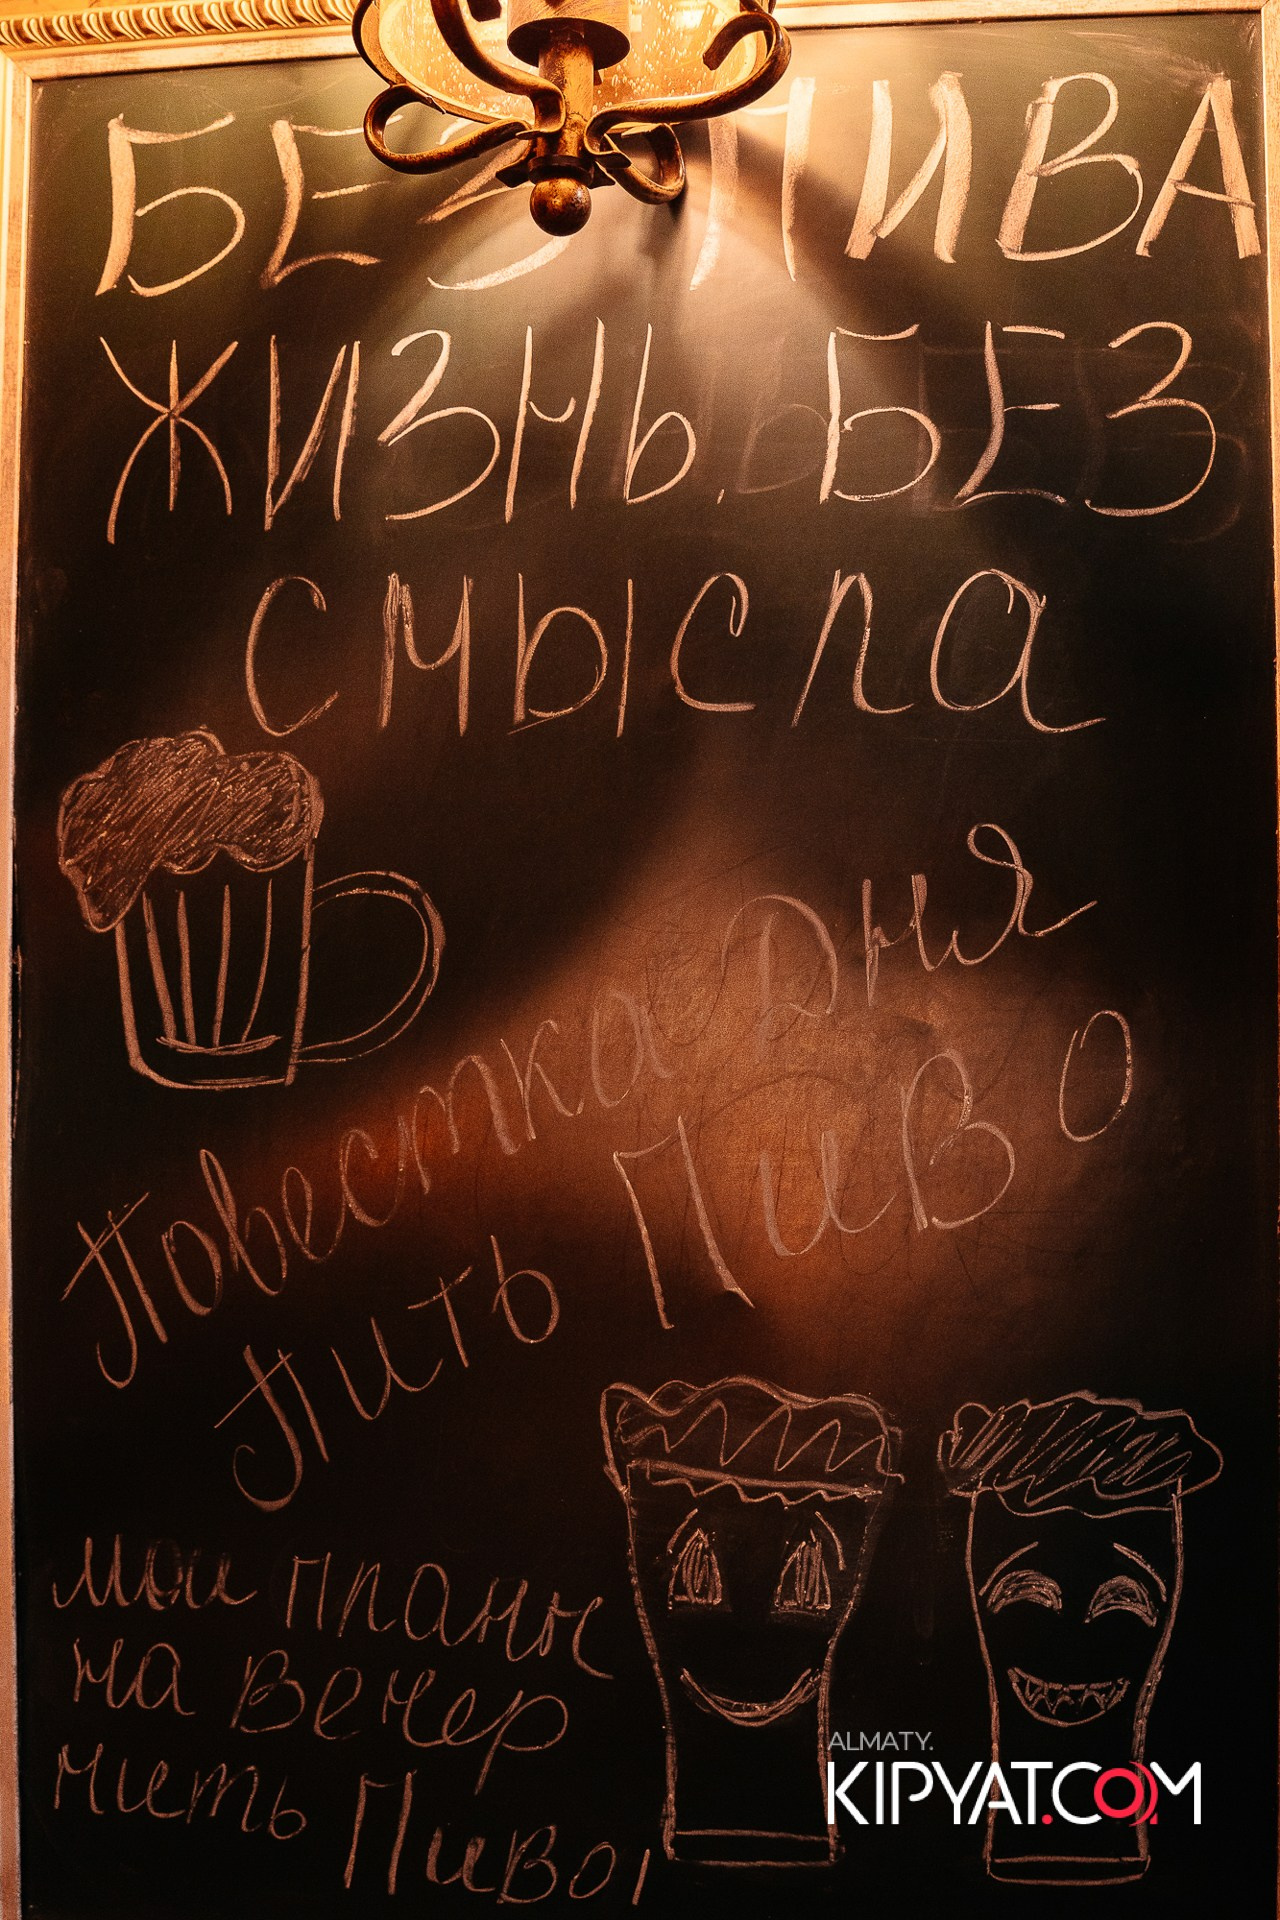 БЕЗ ПИВА
ЖИЗНЬ БЕЗ
смысла
Повестка Дня
Пить ПиВО
мои планы
на вечер
пить Пиво!
ALMATY.
KIPYAT.COM